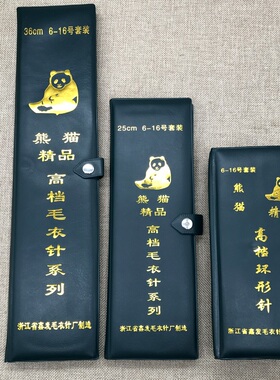 36cm 6-16号套装
熊猫
精品
高档毛衣针系列
浙江省鑫发毛衣针厂制造
25cm 6-16号套装
熊猫
精品
高档毛衣针系列
浙江省鑫发毛衣针厂制造
6-16号套
熊猫
高档环形针
浙江省鑫发毛衣针